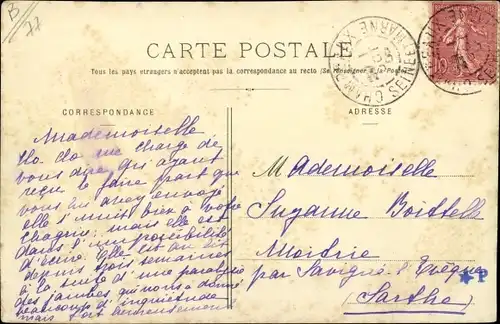 B
77
CARTE POSTALE
Tous les pays étrangers n'acceptent pas la correspondance au recto (Se renseigner à la Poste)
CORRESPONDANCE
ADRESSE
SEINE-ET-MARNE
10
Mademoiselle
Clo Clo me charge de
vous dire qu'ayant
reçu le faire part que
vous lui avez envoyé
elle s'unit bien à votre
chagrin; mais elle est
dans l'impossibilité
d'écrire. Elle est au lit
depuis trois semaines
à la suite d'une paralysie
des jambes qui nous a donné
beaucoup d'inquiétude
mais fort heureusement
Mademoiselle
Suzanne Boittelle
Mairie
par Savigné l'Evêque
(Sarthe)
P